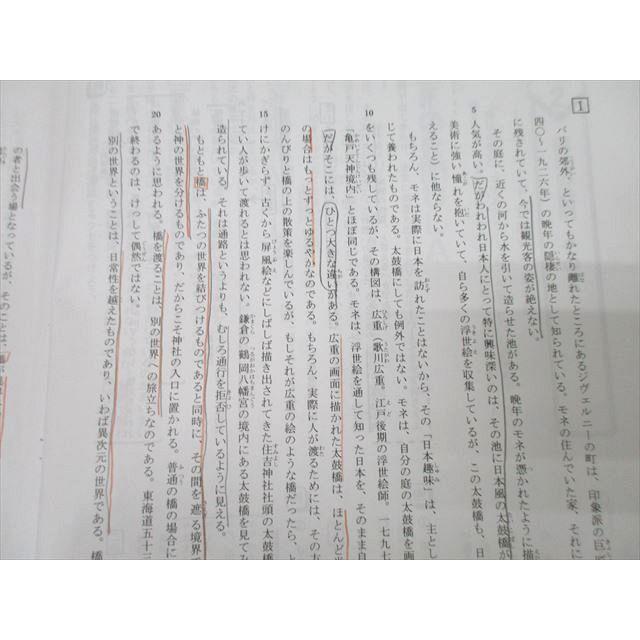 1
パリの郊外、といってもかなり離れたところにあるジヴェルニーの町は、印象派の巨
四〇~一九二六年)の晩年の隠棲の地として知られている。モネの住んでいた家、それに
に残されていて、今では観光客の姿が絶えない。
その庭に、近くの河から水を引いて造らせた池がある。晩年のモネが憑かれたように描
5 人気が高い。だがわれわれ日本人にとって特に興味深いのは、その池に日本風の太鼓橋が
美術に強い憧れを抱いていて、自ら多くの浮世絵を収集しているが、この太鼓橋も、日
えること)に他ならない。
もちろん、モネは実際に日本を訪れたことはないから、その「日本趣味」は、主とし
じて養われたものである。太鼓橋にしても例外ではない。モネは、自分の庭の太鼓橋を画
10 をいくつも残しているが、その構図は、広重(歌川広重。江戸後期の浮世絵師。一七九七
「亀戸天神境内」とほぼ同じである。モネは、浮世絵を通して知った日本を、そのまま自
だがそこには、ひとつ大きな違いがある。広重の画面に描かれた太鼓橋は、ほとんど
の場合はもっとずっとゆるやかなのである。もちろん、実際に人が渡るためには、その方
のんびりと橋の上の散策を楽しんでいるが、もしそれが広重の絵のような橋だったら、と
15 けにかぎらず、古くから屏風絵などにしばしば描き出されてきた住吉神社社頭の太鼓橋
ていて人が歩いて渡れるとは思われない。鎌倉の鶴岡八幡宮の境内にある太鼓橋を見て
造られている。それは通路というよりも、むしろ通行を拒否しているように見える。
もともと橋は、ふたつの世界を結びつけるものであると同時に、その間を遮る境界で
と神の世界を分けるものであり、だからこそ神社の入口に置かれる。普通の橋の場合に
20 あるように思われる。橋を渡ることは、別の世界への旅立ちなのである。東海道五十三
で終わるのは、けっして偶然ではない。
別の世界ということは、日常性を越えたものであり、いわば異次元の世界である。橋
の者と出会う場となっているが、そのことは、橋が